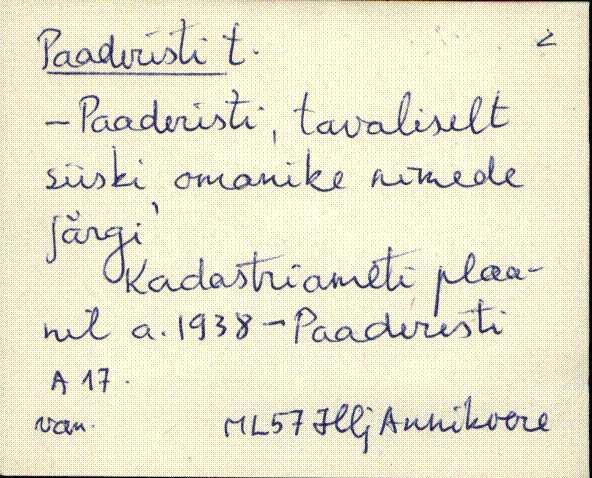 Paaderisti t. 2
– Paaderisti, tavaliselt
siiski omanike nimede
järgi'
Kadastriameti plaa-
nil a. 1938 – Paaderisti
A 17.
van. ML57 Illj Annikvere